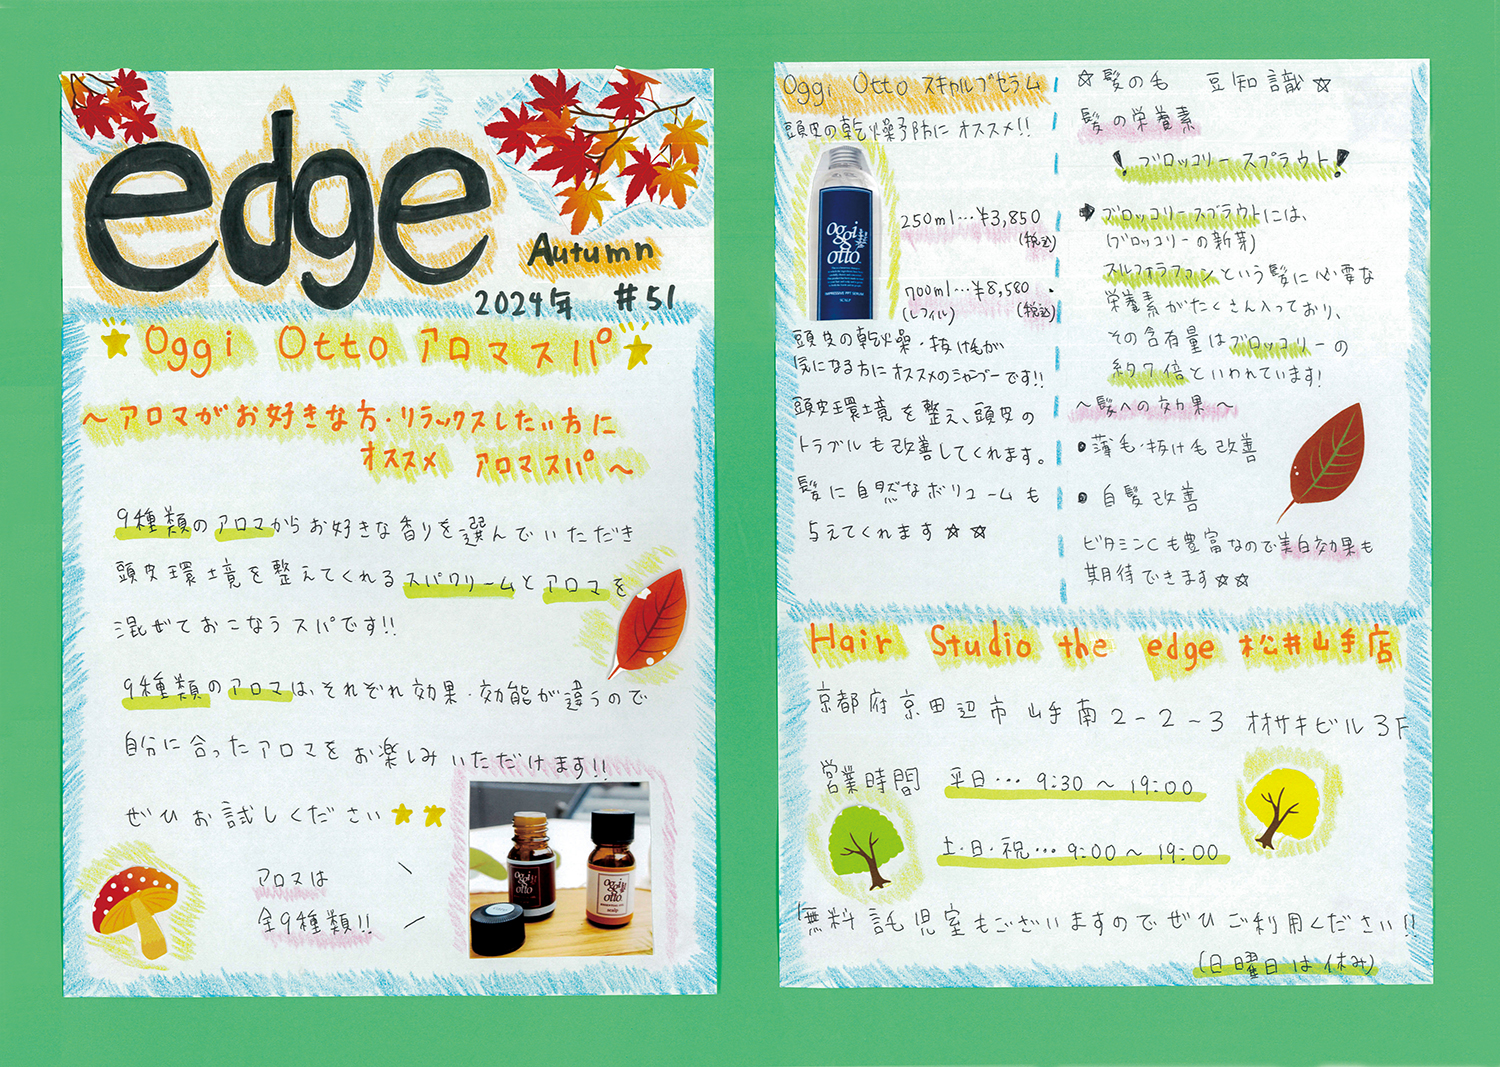 edge
Autumn
2024年 #51
Oggi Otto アロマスパ
～アロマがお好きな方・リラックスしたい方に
オススメ アロマスパ～
9種類のアロマからお好きな香りを選んでいただき
頭皮環境を整えてくれるスパクリームとアロマを
混ぜておこなうスパです!!
9種類のアロマは、それぞれ効果・効能が違うので
自分に合ったアロマをお楽しみいただけます!!
ぜひお試しください
アロマは
全9種類!!
oggi
otto
oggi
otto
Oggi Otto スキャルプセラム
頭皮の乾燥予防にオススメ!!
oggi
otto
250ml…¥3,850
(税込)
700ml…¥8,580
(レフィル) (税込)
頭皮の乾燥・抜け毛が
気になる方にオススメのシャンプーです!!
頭皮環境を整え、頭皮の
トラブルも改善してくれます。
髪に自然なボリュームも
与えてくれます☆☆
☆髪の毛 豆知識☆
髪の栄養素
! ブロッコリースプラウト!
➡ブロッコリースプラウトには、
(ブロッコリーの新芽)
スルフォラファンという髪に必要な
栄養素がたくさん入っており、
その含有量はブロッコリーの
約7倍といわれています!
～髪への効果～
●薄毛・抜け毛改善
●白髪改善
ビタミンCも豊富なので美白効果も
期待できます☆☆
Hair Studio the edge 松井山手店
京都府京田辺市山手南2-2-3 オオサキビル3F
営業時間 平日…9:30～19:00
土・日・祝…9:00～19:00
無料託児室もございますのでぜひご利用ください!!
(日曜日は休み)